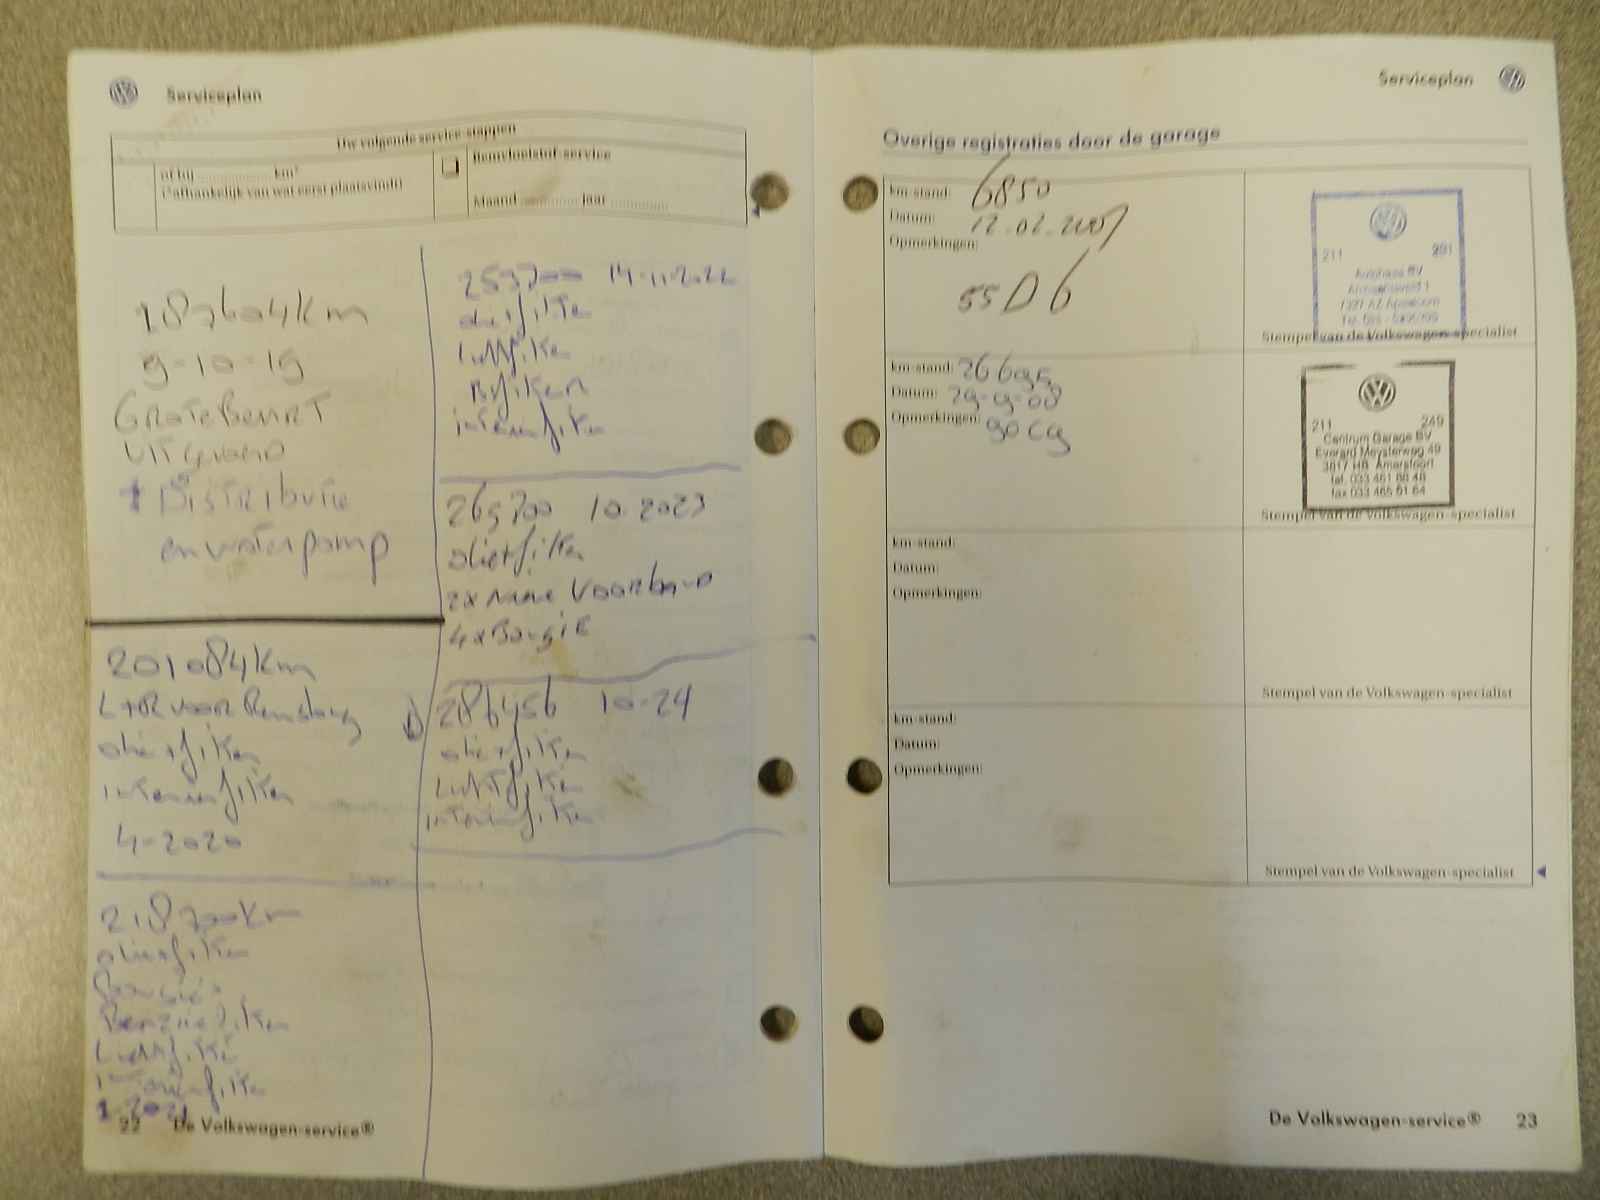 Serviceplan
Uw volgende service-stappen
of bij ............ km*
(*afhankelijk van wat eerst plaatsvindt)
Remvloeistof-service
Maand ............ jaar ............
187604Km
9-10-19
Grote Beurt
Uitgevoerd
+ Distributie
en waterpomp
201084Km
L+R voor
olie+filter
interieurfilter
4-2020
218700Km
olie+filter
Bougies
Benzinefilter
Luchtfilter
interieurfilter
1 2021
14-11-2022
olie+filter
Luchtfilter
interieurfilter
269700 10-2023
olie+filter
2x nieuwe Voorband
4x Bougie
286456 10-24
olie+filter
Luchtfilter
interieurfilter
22 De Volkswagen-service®
Serviceplan
Overige registraties door de garage
km-stand: 6850
Datum: 12-02-2007
Opmerkingen:
55D6
211
Stempel van de Volkswagen-specialist
km-stand: 26695
Datum: 29-9-08
Opmerkingen: 90C9
211 249
Centrum Garage BV
Everard Meysterweg 49
3817 HB Amersfoort
tel. 033 461 88 48
fax 033 465 01 64
Stempel van de Volkswagen-specialist
km-stand:
Datum:
Opmerkingen:
Stempel van de Volkswagen-specialist
km-stand:
Datum:
Opmerkingen:
Stempel van de Volkswagen-specialist
De Volkswagen-service® 23